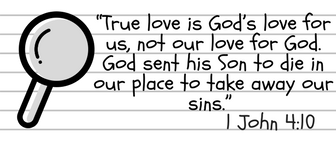 “True love is God’s love for
us, not our love for God.
God sent his Son to die in
our place to take away our
sins.”
1 John 4:10